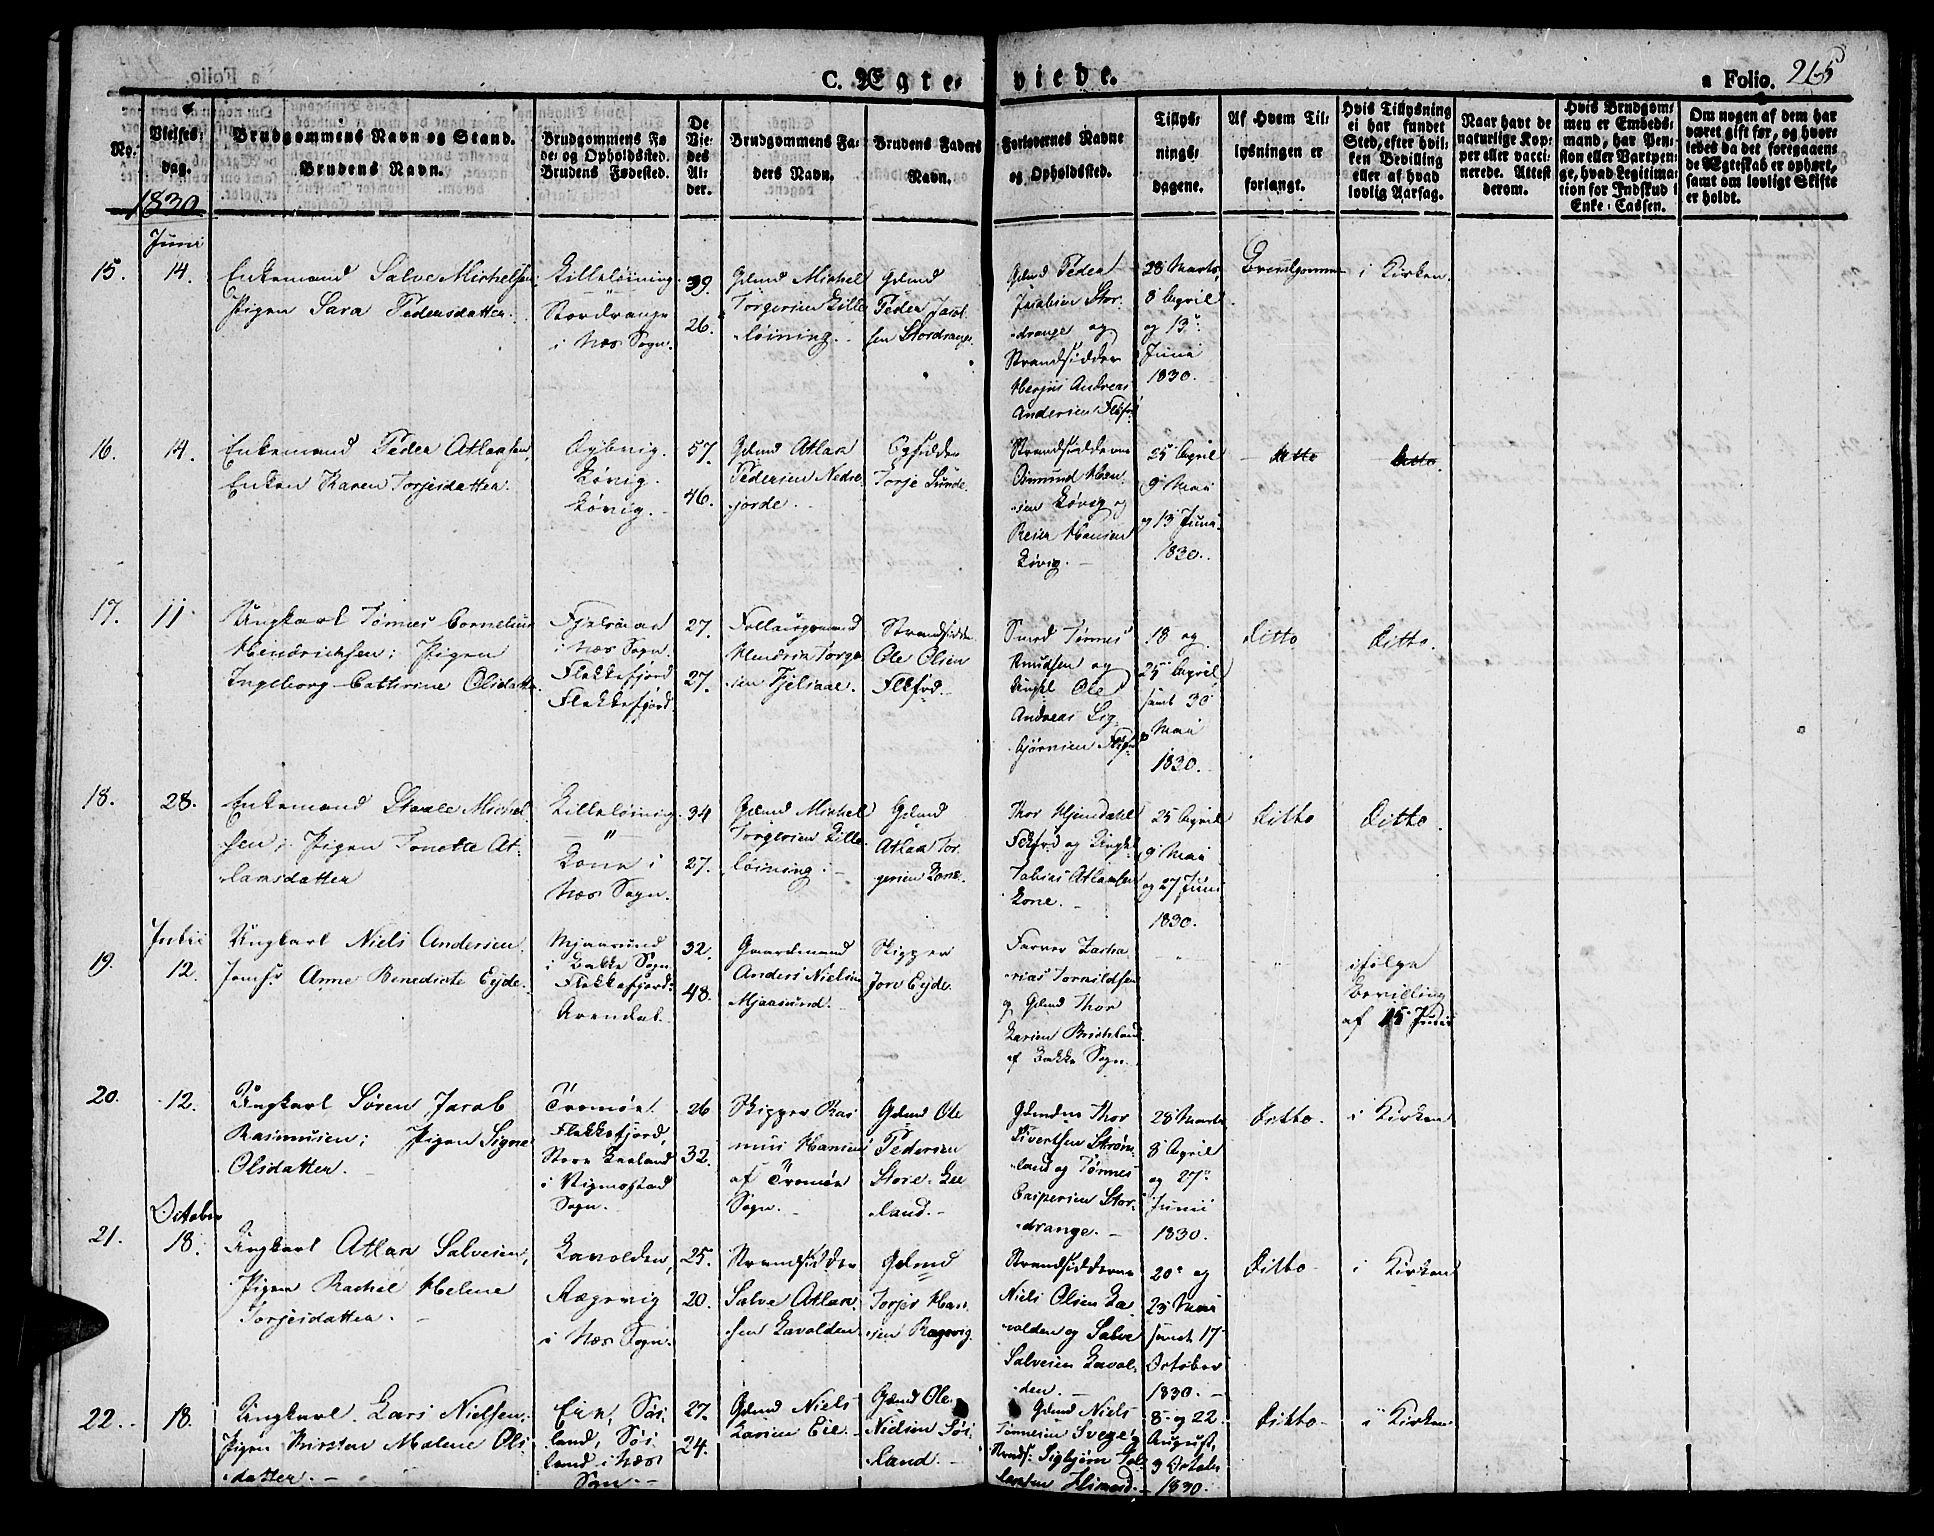 C. Ægte-
viede.
a Folio. 265
No.
Vielses-
dag.
Brudgommens Navn og Stand.
Brudens Navn.
Brudgommens Fø-
de- og Opholdssted.
Brudens Fødested.
De
Vie-
des
Al-
der.
Brudgommens Fa-
ders Navn.
Brudens Faders
Navn.
Forlovernes Navne
og Opholdssted.
Tillys-
nings-
dagene.
Af Hvem Til-
lysningen er
forlangt.
Hvis Tillysning
ei har fundet
Sted, efter hvil-
ken Bevilling
eller af hvad
lovlig Aarsag.
Naar havt de
naturlige Kop-
per eller vacci-
nerede. Attest
derom.
Hvis Brudgom-
men er Embeds-
mand, har Pen-
sion eller Vartpen-
ge, hvad Legitima-
tion for Indskud i
Enke-Cassen.
Om nogen af dem har
været gift før, og hvor-
ledes da det foregaaen-
de Ægteskab er ophørt,
samt om lovligt Skifte
er holdt.
1830
Juni
15.
14.
Enkemand Salve Michelsen;
Pigen Sara Pedersdatter.
Lilleløining.
Stordrange
i Næs Sogn.
39.
26.
Gdmd Michel
Torgersen Lille
løining.
Gdmd
Peder Jacob
sen Stordrange.
Gdmd Peder
Jacobsen Stor-
drange og
Strandsidder
Andreas
Andersen
28 Marts,
8 April
og 13
Junii
1830.
Brudgommen
i Kirken.
16.
14.
Enkemand Peder Atlaksen,
Enken Karen Torjesdatter.
Løvig.
Løvig.
57.
46.
Gdmd Atlak
Pedersen Nedre
jorde.
Torje Lunde.
Strandsidderne
Omund Han-
sen Løvig og
Reier Hansen
Løvig.
25 April
9 Mai
og 13 Junii
1830.
ditto
ditto.
17.
11
Ungkarl Tønnes Cornelius
Hendrichsen; Pigen
Ingeborg Cathrine Olsdatter.
Fjelsaae
i Næs Sogn.
Flekkefjord
Flekkefjord.
27.
27.
Hendrik Torge
sen Fjelsaae.
Strandsidder
Ole Olsen
Flkfrd.
Smed Tønnes
Knudsen og
Ungk. Ole
Andreas Sig-
bjørnsen
18 og
25 April,
samt 30
Mai
1830.
ditto
ditto.
18.
28.
Enkemand Staale Michel
sen; Pigen Tonette At-
laksdatter
Lilleløining.
"
Lone i
Næs Sogn.
34
27.
Gdmd Michel
Torgersen Lille
løining.
Gdmd
Atlak Tor-
gersen Lone.
Thor Hjemdahl
Flkfrd og Ungk.
Tobias Atlaksen
Lone.
25 April
9 Mai
og 27 Junii
1830.
ditto
ditto.
Julii
19.
12.
Ungkarl Niels Andersen.
Jomfr. Anne Benedicte Eyde.
Mjaasund
i Bakke Sogn.
Flekkefjord.
Arendal.
32.
48.
Gaardmand
Anders Nielsen
Mjaasund.
Skipper
Jørn Eyde.
Farver Zacha
rias Tornildsen
og Gdmd Thor
Larsen Birkeland
af Bakke Sogn.
ifølge
Bevilling
af 15 Junii
20.
12.
Ungkarl Søren Jacob
Rasmusen; Pigen Signe
Olsdatter.
Tromøe.
Flekkefjord,
Store
i Vigmostad
Sogn.
26
32.
Skipper Ras
mus Hansen
af Tromøe
Sogn.
Gdmd Ole
Pedersen
Store
land.
Gdmdne Thor
Sivertsen Strøm
land og Tønnes
Caspersen Stor-
drange.
28 Marts
8 April
og 27
Junii
1830.
ditto.
i Kirken
October
21.
18.
Ungkarl Atlak Salvesen,
Pigen Rachel Helene
Torjesdatter.
Lavolden,
Rægevig
i Næs Sogn.
25.
20.
Strandsidder
Salve Atlak-
sen Lavolden.
Gdmd
Torjes Han-
sen Rægevig.
Strandsidderne
Niels Olsen La-
volden og Salve
Salvesen Lavol-
den.
20 og
23 Mai
samt 17
October
1830.
ditto.
i Kirken
22.
18.
Ungkarl Lars Nielsen,
Pigen Kirsten Malene Ols-
datter.
Eie, Søi-
land, Søi
land i Næs
Sogn.
27.
24.
Gdmd Niels
Larsen Eie.
Gdmd Ole
Nielsen Søi-
land.
Gdmd Niels
Tønnesen Svege og
Strands. Sigbjørn
8 og 22
August,
3 October
1830.
ditto.
i Kirken